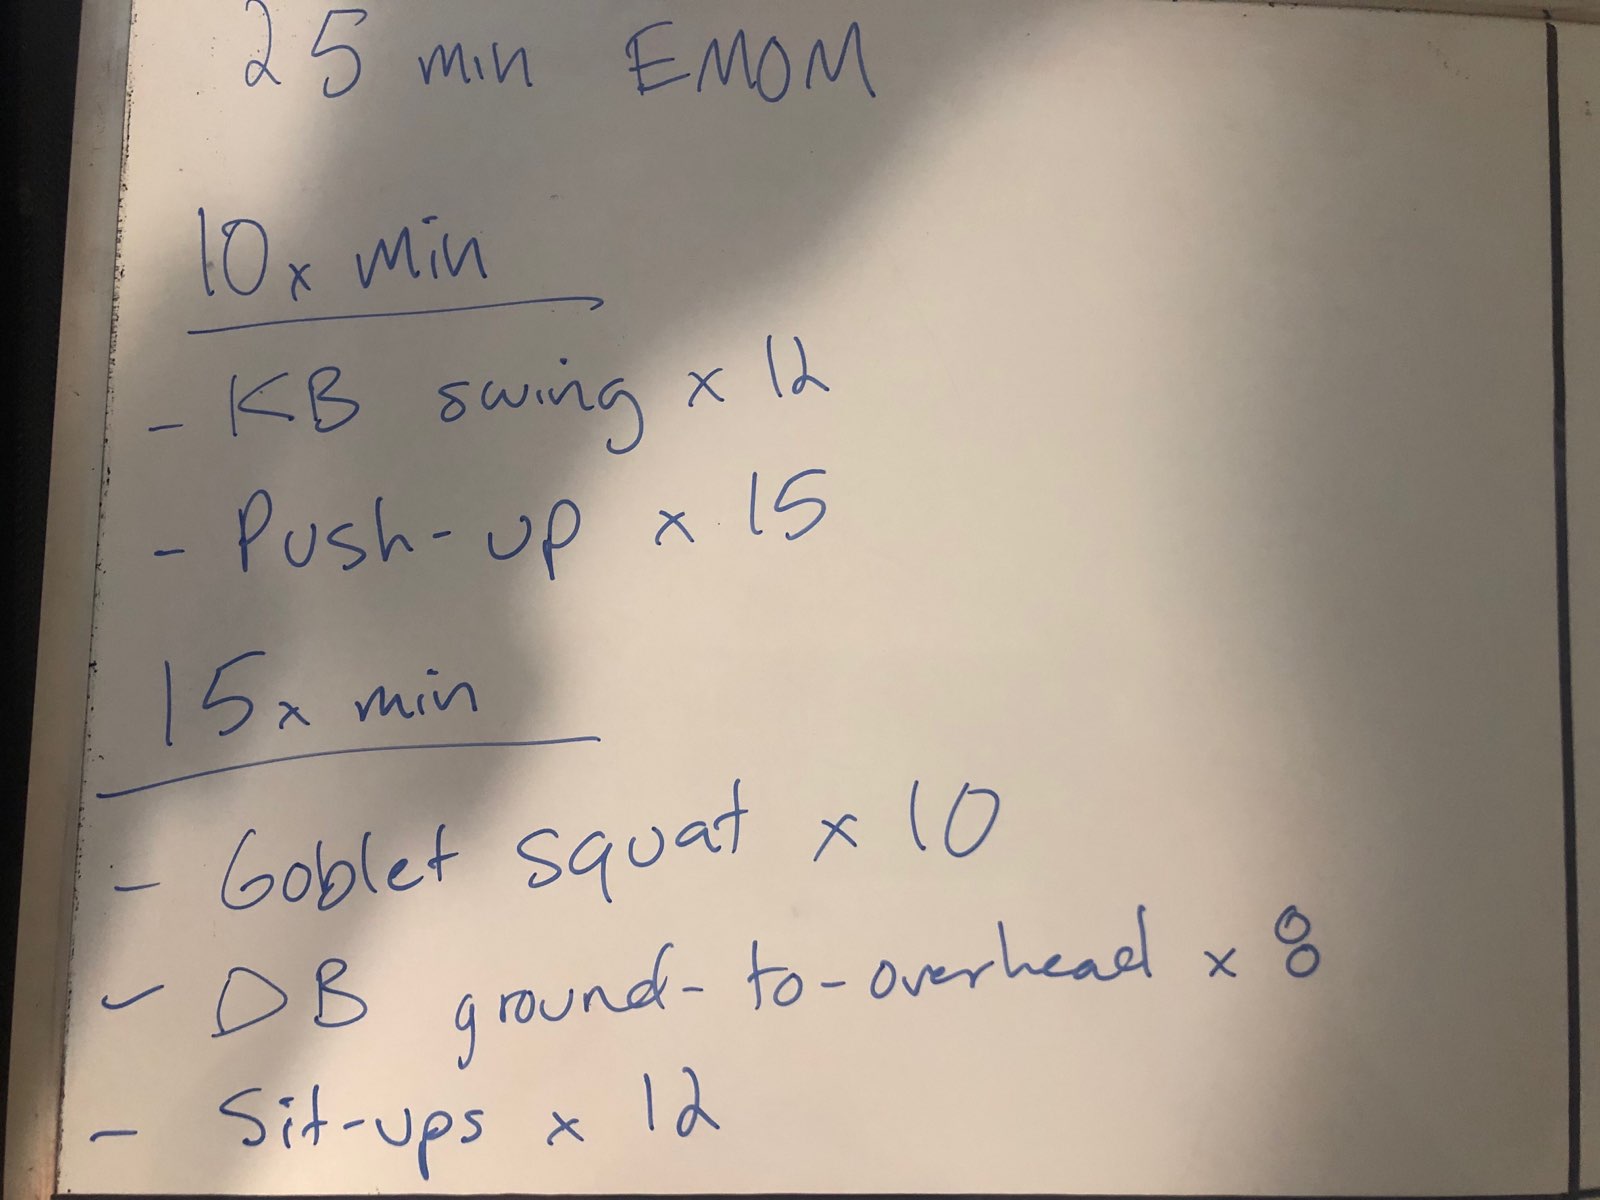 25 min EMOM
10x min
- KB swing x 12
- Push-up x 15
15x min
- Goblet squat x 10
- DB ground-to-overhead x 8
- Sit-ups x 12